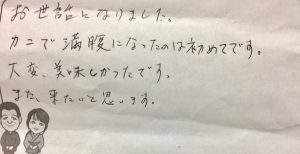 お世話になりました。
カニで満腹になったのは初めてです。
大変、美味しかったです。
また、来たいと思います。